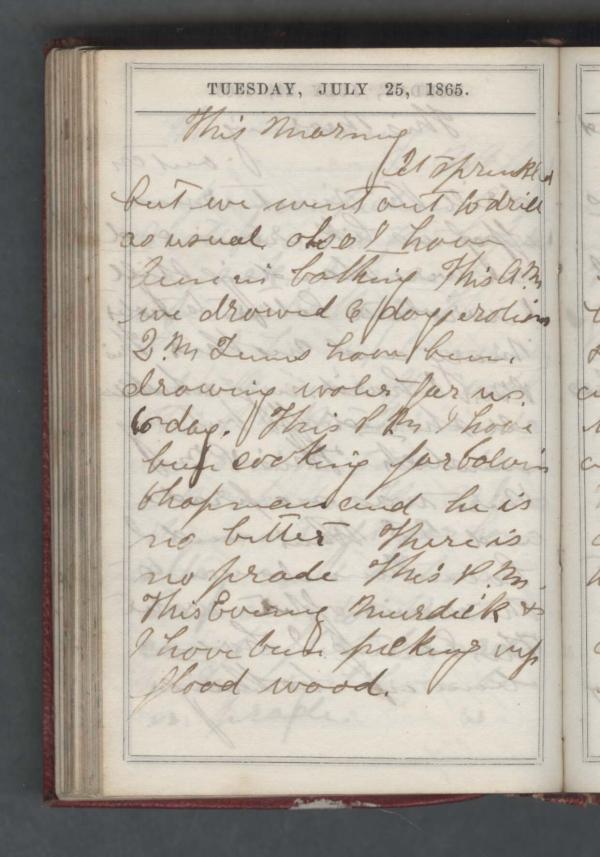 TUESDAY, JULY 25, 1865.
This Morning
it sprinkled
but we went out to drill
as usual also I have
been in bathing This A.M.
we drawed 6 days rations
2. M Teams have been
drawing water for us
to day. This P.M. I have
been cooking for
Chapman and he is
no better There is
no prade This P.M.
This Evening Murdick &
I have been picking up
flood wood.